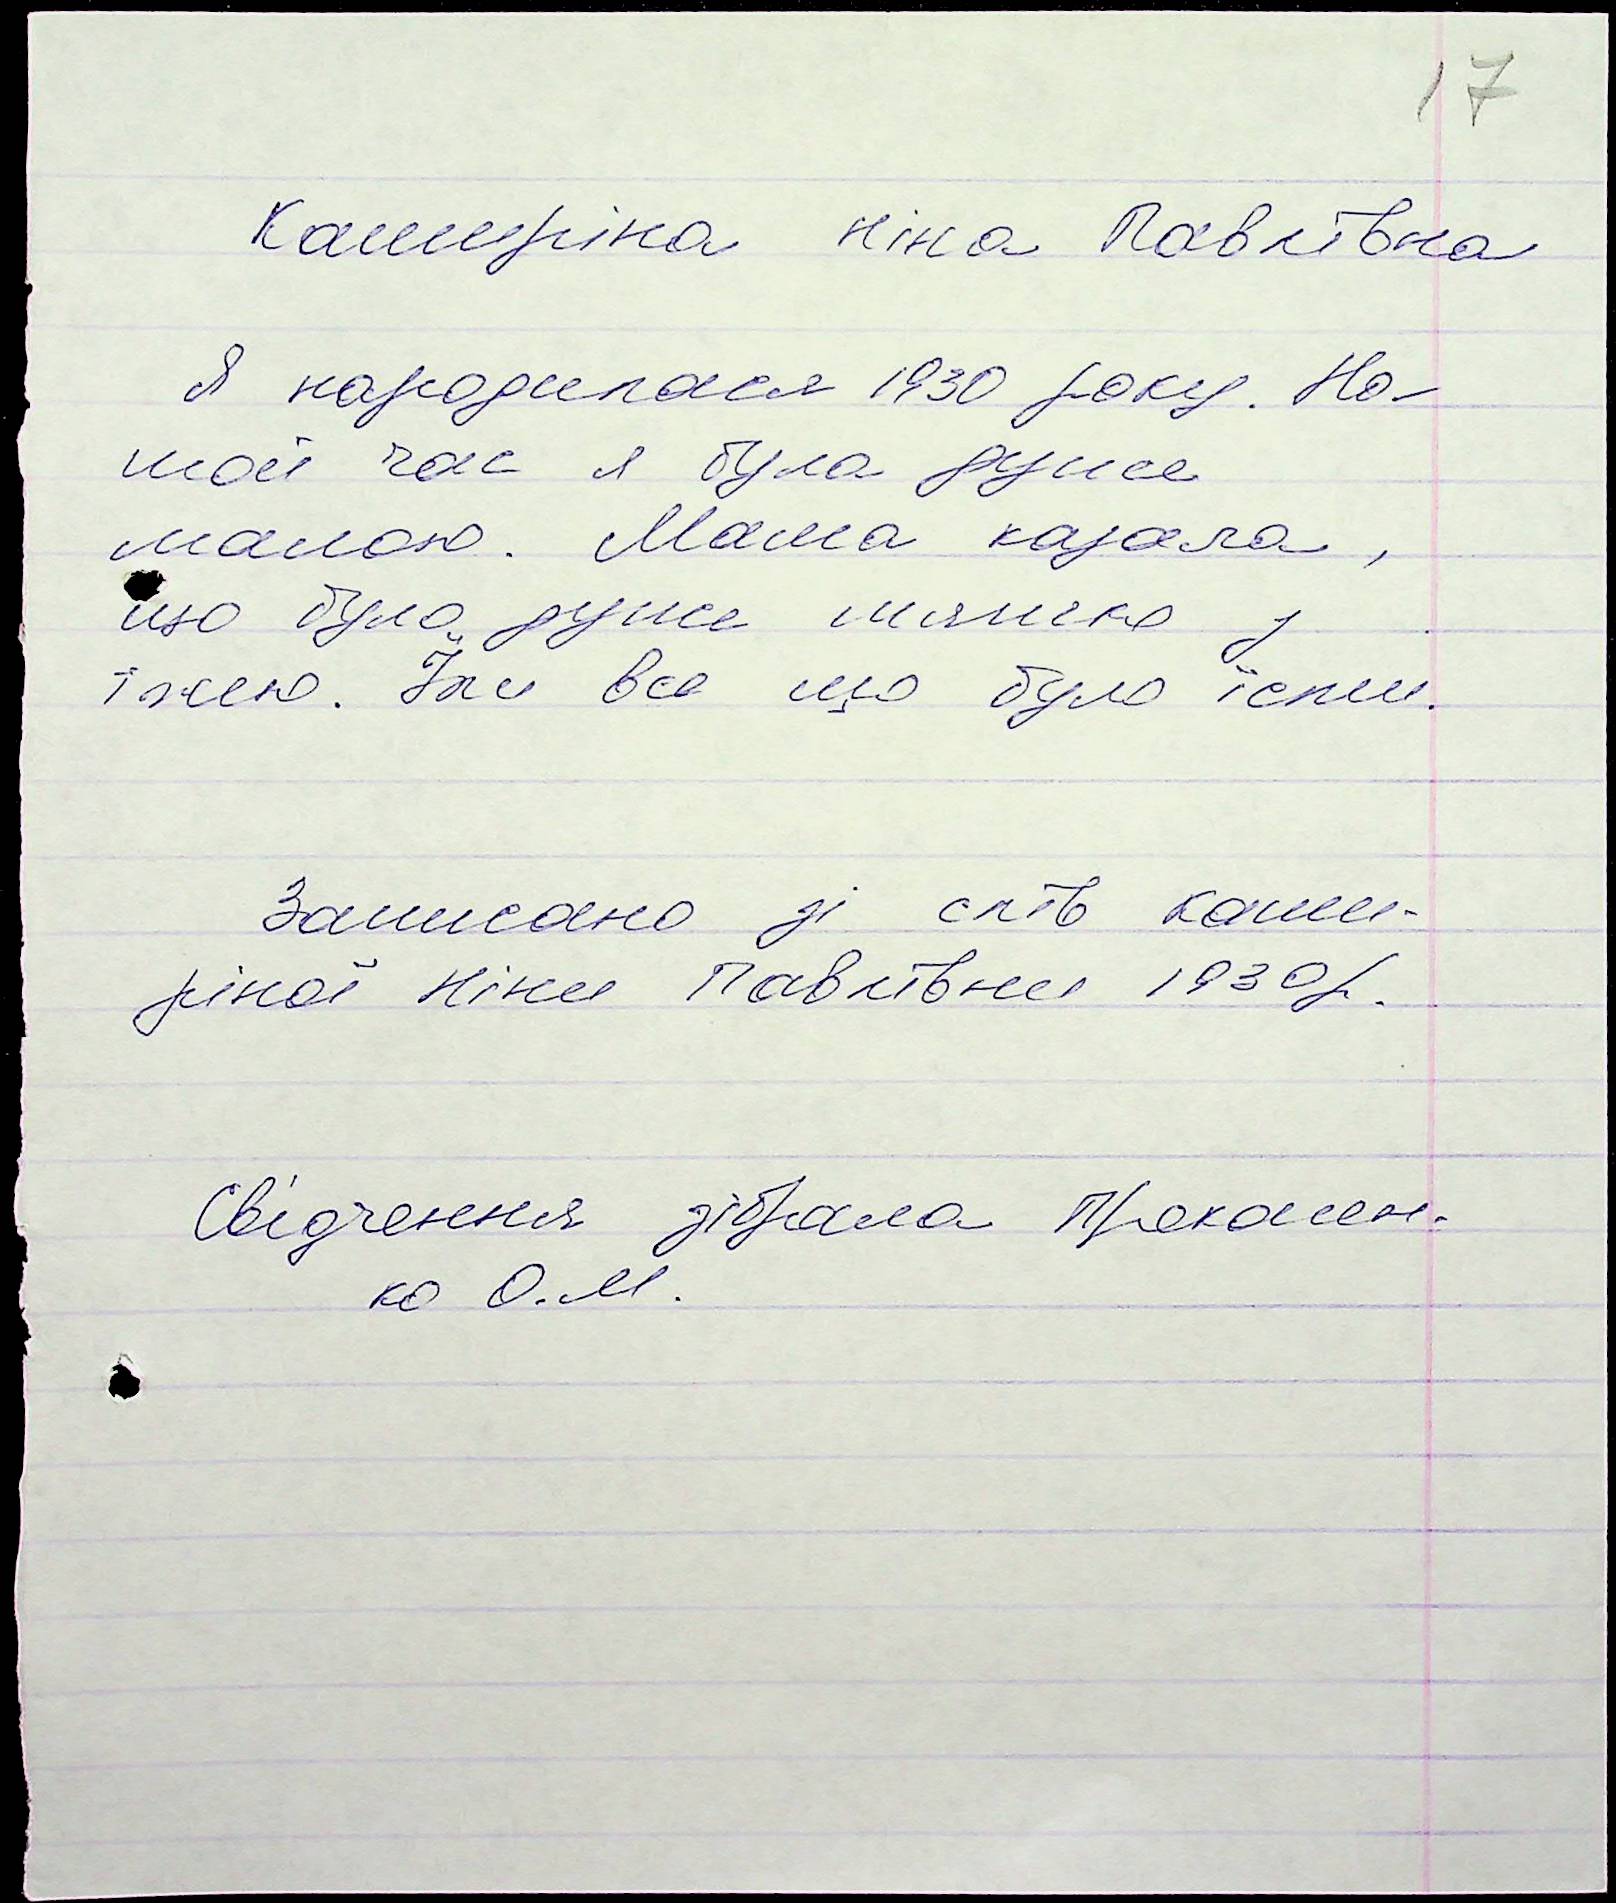 17
Каширіна Ніна Павлівна
Я народилася 1930 року. На
той час я була дуже
малою. Мама казала,
що було дуже тяжко з
їжею. Їли все що було їсти.
Записано зі слів Каши-
ріної Ніни Павлівни 1930р.
Свідчення зібрала Прокопен-
ко О.М.